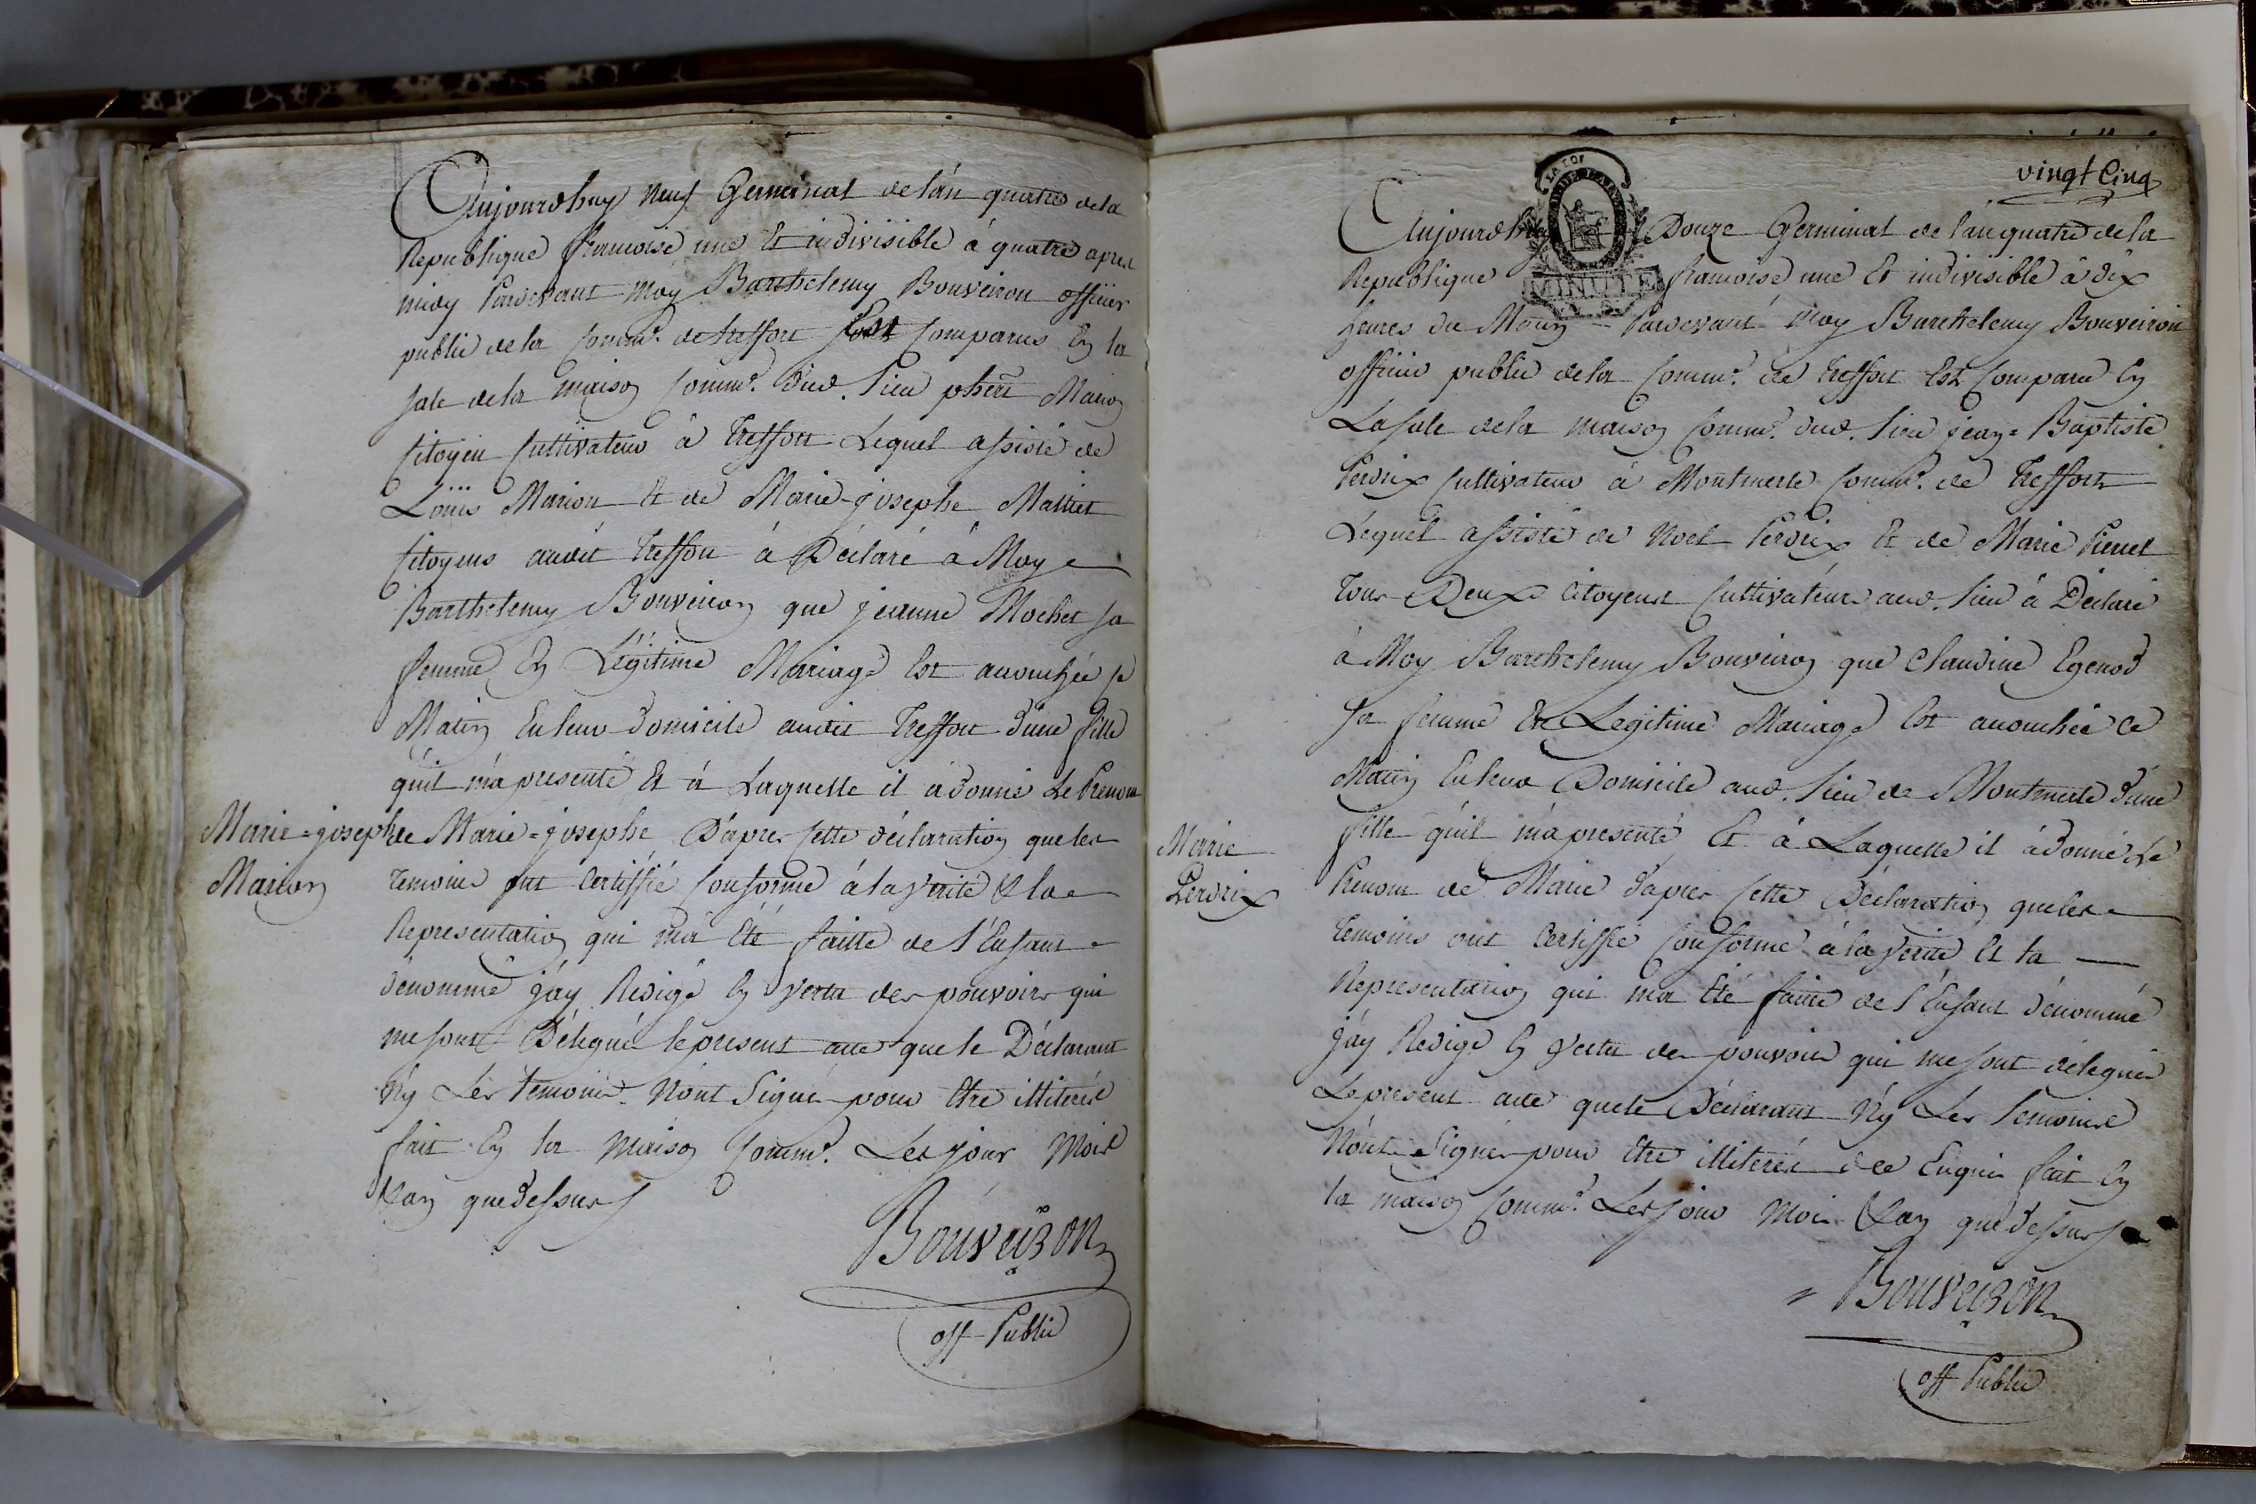 Aujourdhuy neuf Germinal de l'an quatre de la
Republique francoise une Et indivisible à quatre apres
midy Pardevant moy Barthelemy Bouveiron officier
public de la Comm.e de treffort Est Comparus En la
sale de la maison Comm.e dud. Lieu Marion
Citoyen Cultivateur à Treffort Lequel assisté de
Loüis Marion Et de Marie-josephe Mattiet
Citoyens audit treffort à Déclaré à Moy
Barthelemy Bouveiron que jeanne Mochet sa
femme En Légitime Mariage Est acouchée ce
Matin En leur Domicile audit Treffort d'une fille
qu'il m'a presenté Et à Laquelle il à donné Le Prenom
Marie-josephe
Marion
de Marie-josephe D'apres Cette déclaration que les
temoins ont Certiffié Conforme à la verité & la
Representation qui m'a Eté faitte de l'Enfant
dénommé j'ay Redigé En vertu des pouvoirs qui
me sont Délegués le present acte que le Déclarant
n'y Les temoins N'ont Signé pour Etre illiterés
fait En la Maison Comm.e Les jour Mois
& an que dessus
Bouveiron
off Public
vingt Cinq
LA LOI
MINUTE
Aujourdhuy Douze Germinal de l'an quatre de la
Republique francoise une Et indivisible à dix
heures du Matin Pardevant Moy Barthelemy Bouveiron
officier public de la Comm.e de treffort Est Comparu En
La sale de la maison Comm.e dud. Lieu jean-Baptiste
Perdrix Cultivateur à Montmerle Comm.e de Treffort
Lequel assisté de Noel Perdrix Et de Marie Pieret
tous Deux Citoyens Cultivateurs aud. Lieu à Déclaré
à Moy Barthelemy Bouveiron que Claudine Egenod
sa femme En Legitime Mariage Est acouchée Ce
Matin En leur Domicile aud. Lieu de Montmerle d'une
fille qu'il m'a presenté Et à Laquelle il à donné Le
Marie
Perdrix
Prenom de Marie d'apres Cette Déclaration que les
temoins ont Certiffié Conforme à la verité Et la
Representation qui m'a Eté faitte de l'Enfant dénommé
j'ay Redigé En vertu des pouvoirs qui me sont délegués
Le present acte que le Déclarant n'y Les temoins
N'ont Signés pour Etre illiterés de Enquis fait En
la maison Comm.e Les jour Mois & an que dessus
Bouveiron
off Public